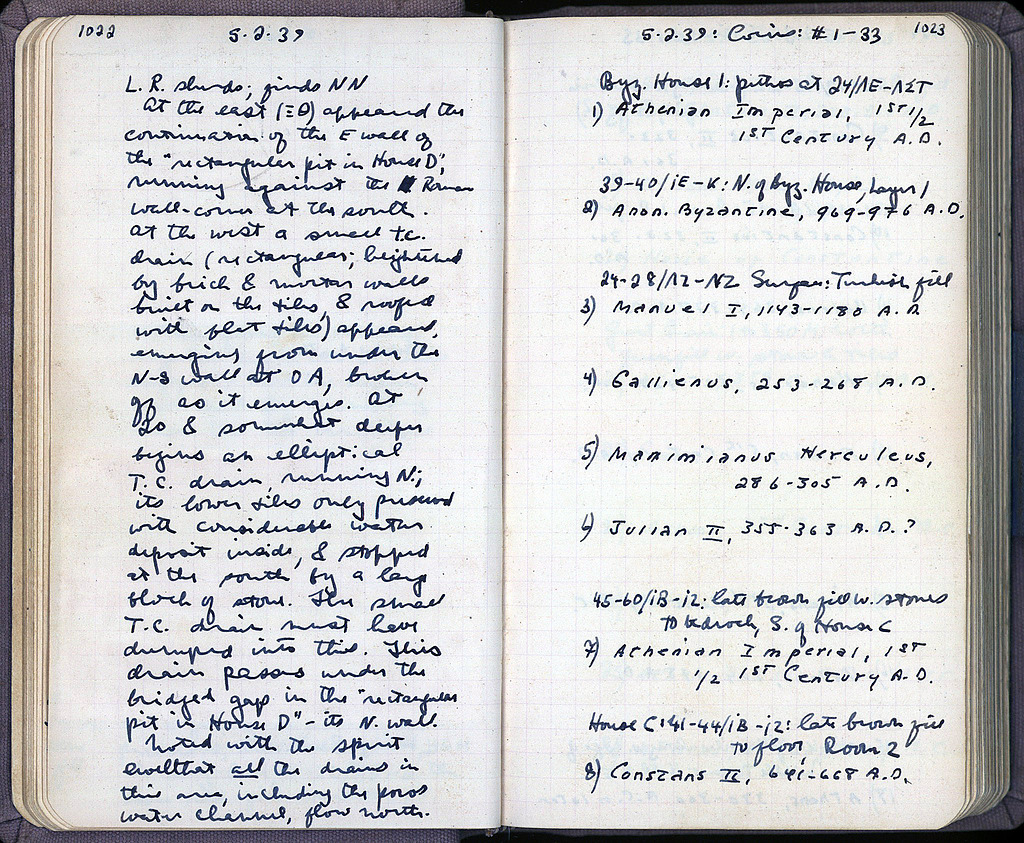 1022
5-2-39
L. R. sherds; finds NN
At the east (ΞΘ) appeared the
continuation of the E wall of
the "rectangular pit in House D",
running against the Roman
wall-corner at the south.
At the west a small t.c.
drain (rectangular; heightened
by brick & mortar walls
built on the tiles, & roofed
with flat tiles) appeared,
emerging from under the
N-S wall at OA, broken
off as it emerges. At
20 & somewhat deeper
begins an elliptical
T.C. drain, running N.;
its lower tiles only preserved
with considerable water
deposit inside, & stopped
at the south by a large
block of stone. The small
T.C. drain must have
dumped into this. This
drain passes under the
bridged gap in the "rectangular
pit in House D" - its N. wall.
Noted with the spirit
level that all the drains in
this area, including the poros
water channel, flow north.
1023
5-2-39: Coins: #1-33
Byz. House 1: pithos at 24/ΛE-ΛΣΤ
1) Athenian Imperial, 1st 1/2
1st Century A.D.
39-40/iE-K: N. of Byz. House, Layer 1
2) Anon. Byzantine, 969-976 A.D.
24-28/ΛZ-NZ Surface: Turkish fill
3) Manuel I, 1143-1180 A.D.
4) Gallienus, 253-268 A.D.
5) Maximianus Herculeus,
286-305 A.D.
6) Julian II, 355-363 A.D.?
45-60/iB-iZ: late brown fill w. stones
to bedrock, S. of House C
7) Athenian Imperial, 1st
1/2 1st Century A.D.
House C: 41-44/iB-iZ: late brown fill
to floor, Room 2
8) Constans II, 641-668 A.D.